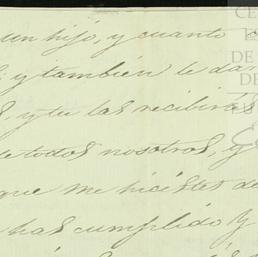 un hijo, y cuanto
y tambien le da
y tu las recibirás
de todos nosotros, y
que me hicistes de
has cumplido y